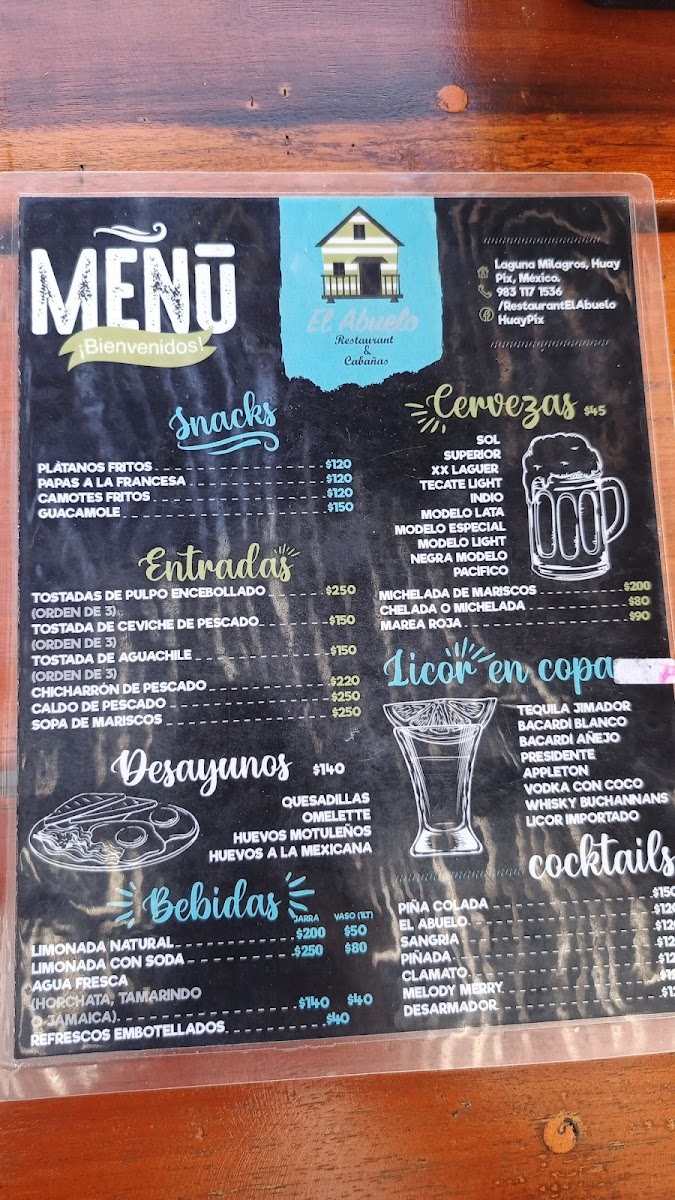 MENŪ
¡Bienvenidos!
El Abuelo
Restaurant
&
Cabañas
Laguna Milagros, Huay
Pix, México.
983 117 1536
/RestaurantElAbuelo
HuayPix
Snacks
PLÁTANOS FRITOS $120
PAPAS A LA FRANCESA $120
CAMOTES FRITOS $120
GUACAMOLE $150
Entradas
TOSTADAS DE PULPO ENCEBOLLADO $250
(ORDEN DE 3)
TOSTADA DE CEVICHE DE PESCADO $150
(ORDEN DE 3)
TOSTADA DE AGUACHILE $150
(ORDEN DE 3)
CHICHARRÓN DE PESCADO $220
CALDO DE PESCADO $250
SOPA DE MARISCOS $250
Desayunos $140
QUESADILLAS
OMELETTE
HUEVOS MOTULEÑOS
HUEVOS A LA MEXICANA
Bebidas JARRA VASO (1LT)
LIMONADA NATURAL $200 $50
LIMONADA CON SODA $250 $80
AGUA FRESCA
(HORCHATA, TAMARINDO
O JAMAICA) $140 $40
REFRESCOS EMBOTELLADOS $40
Cervezas $45
SOL
SUPERIOR
XX LAGUER
TECATE LIGHT
INDIO
MODELO LATA
MODELO ESPECIAL
MODELO LIGHT
NEGRA MODELO
PACÍFICO
MICHELADA DE MARISCOS $200
CHELADA O MICHELADA $80
MAREA ROJA $90
Licor en copa
TEQUILA JIMADOR
BACARDÍ BLANCO
BACARDÍ AÑEJO
PRESIDENTE
APPLETON
VODKA CON COCO
WHISKY BUCHANNANS
LICOR IMPORTADO
cocktails
PIÑA COLADA $150
EL ABUELO
SANGRIA
PIÑADA
CLAMATO
MELODY MERRY
DESARMADOR